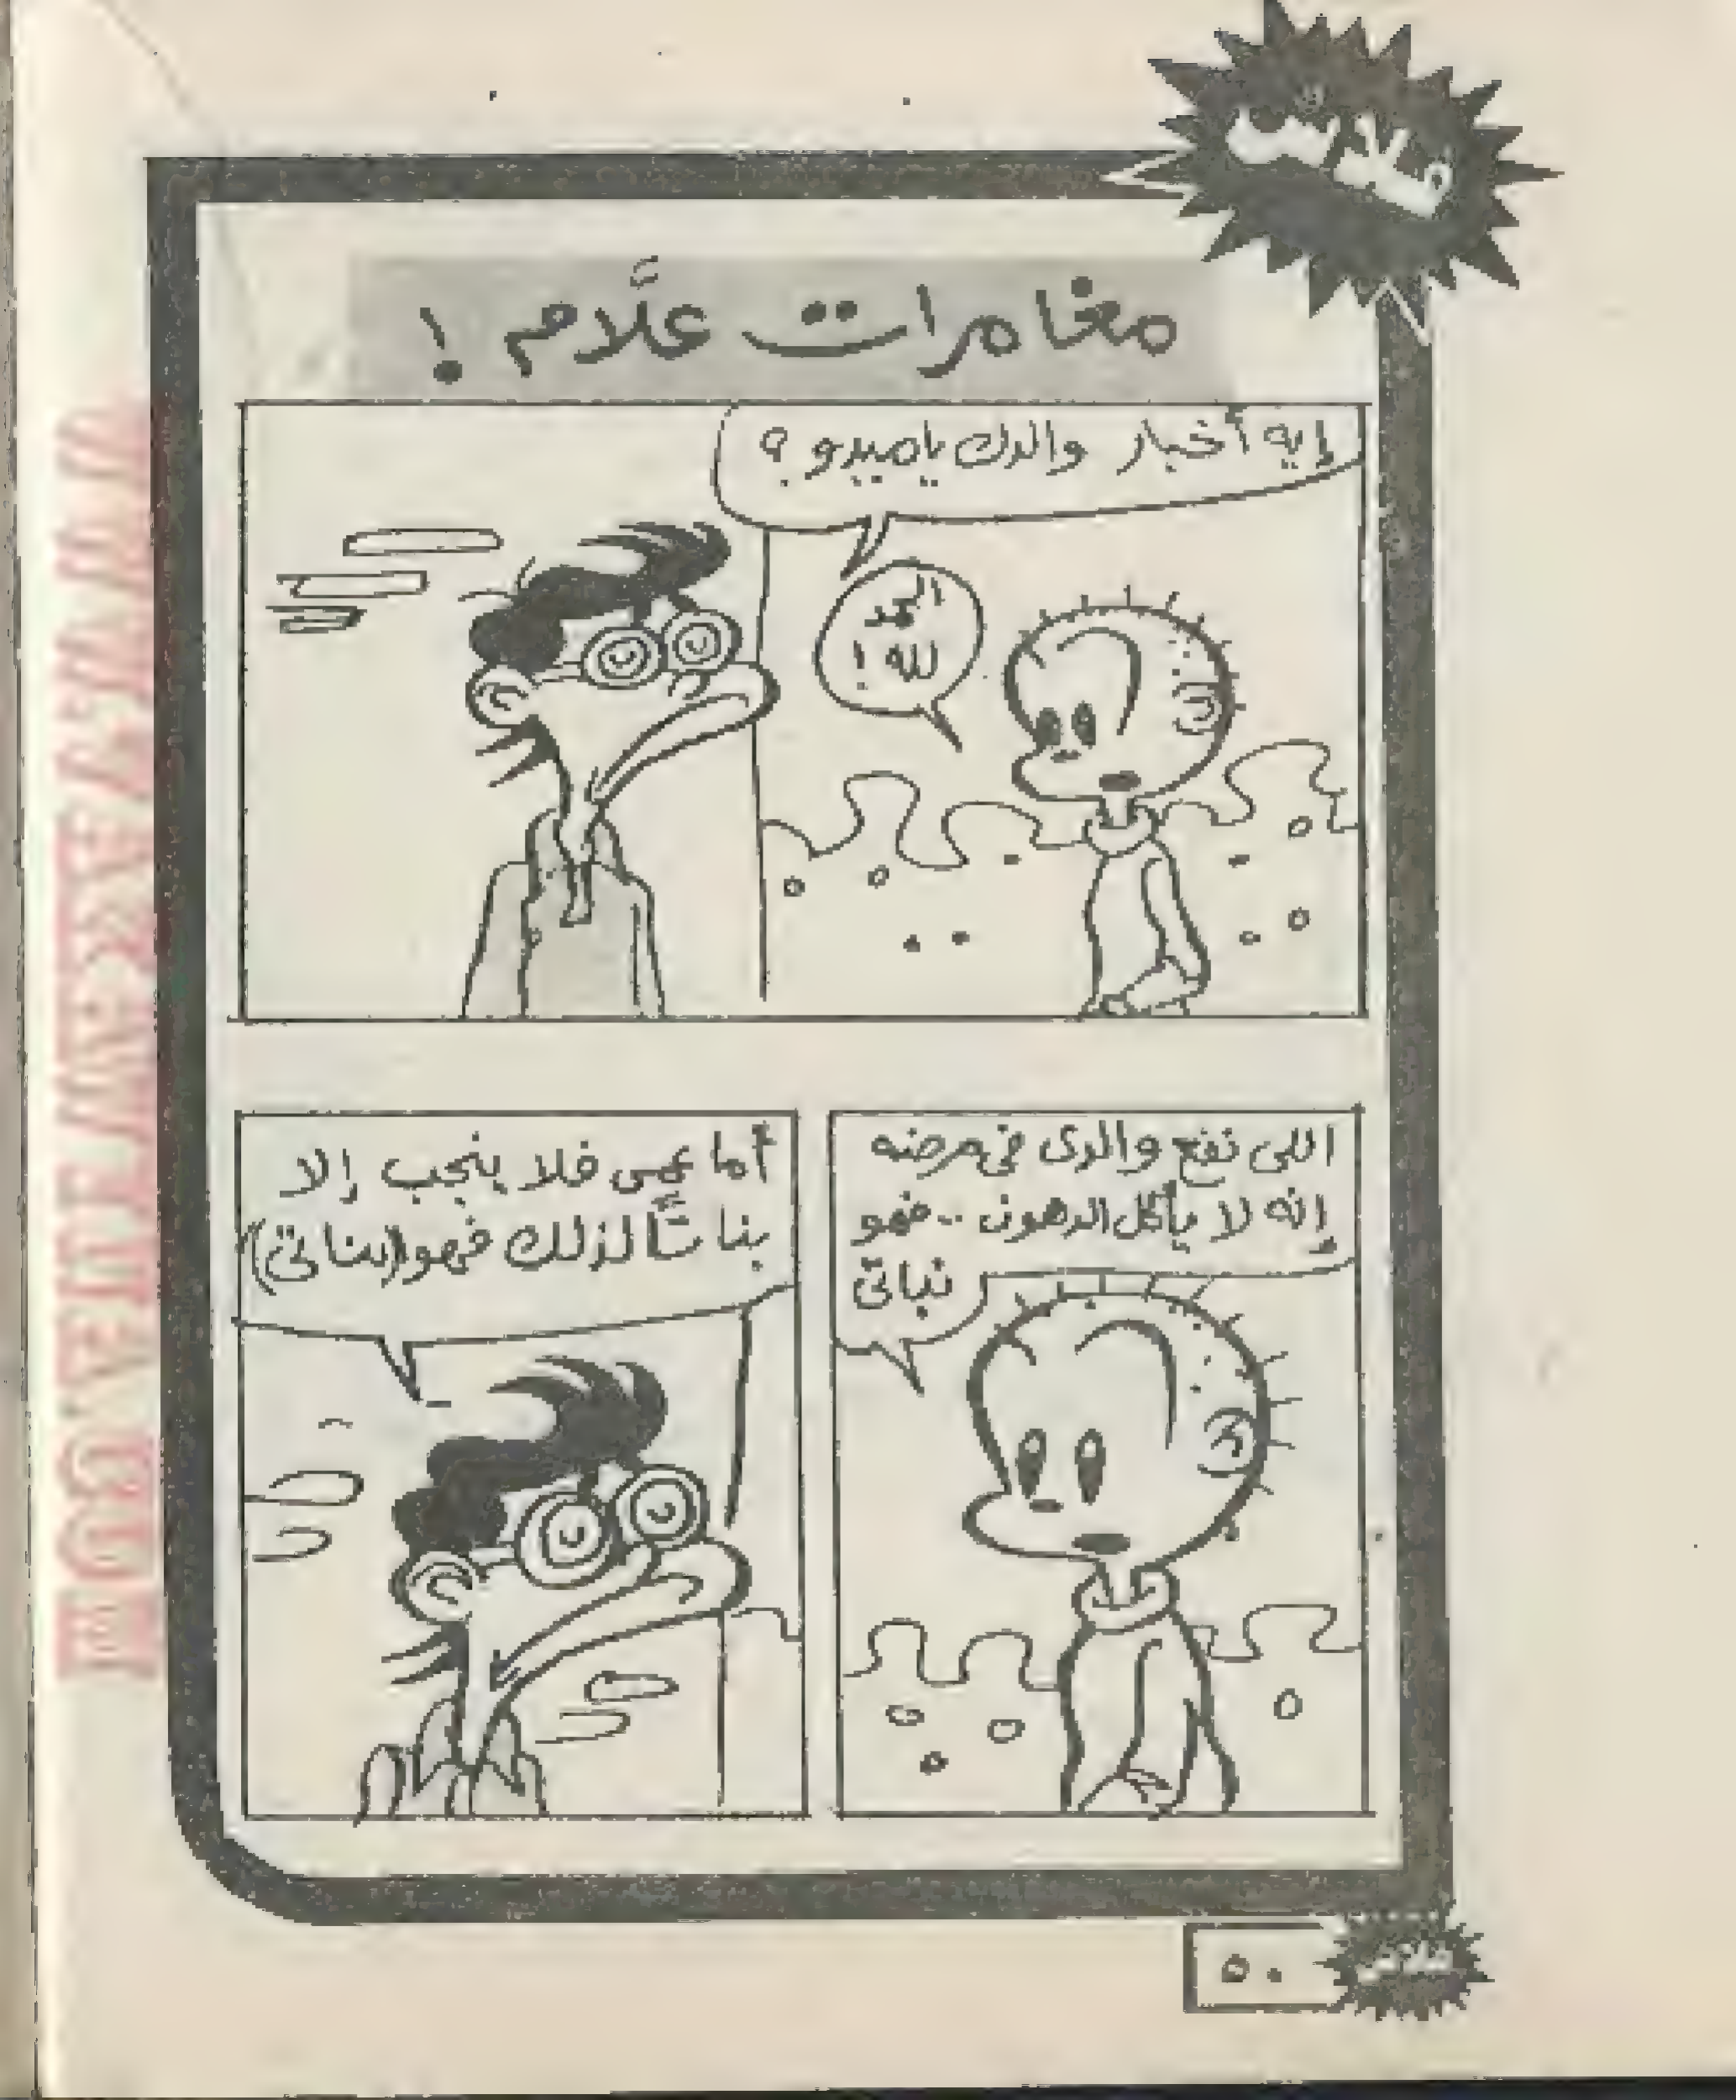 فلاش
مغامرات علَّام !
إيه أخبار والدك ياميدو ؟
الحمد
لله !
اللى نفع والدى فى مرضه
إنه لا يأكل الدهون .. فهو
نباتى
أما عمى فلا ينجب إلا
بناتًا لذلك فهو (بناتى)
٥٠
فلاش